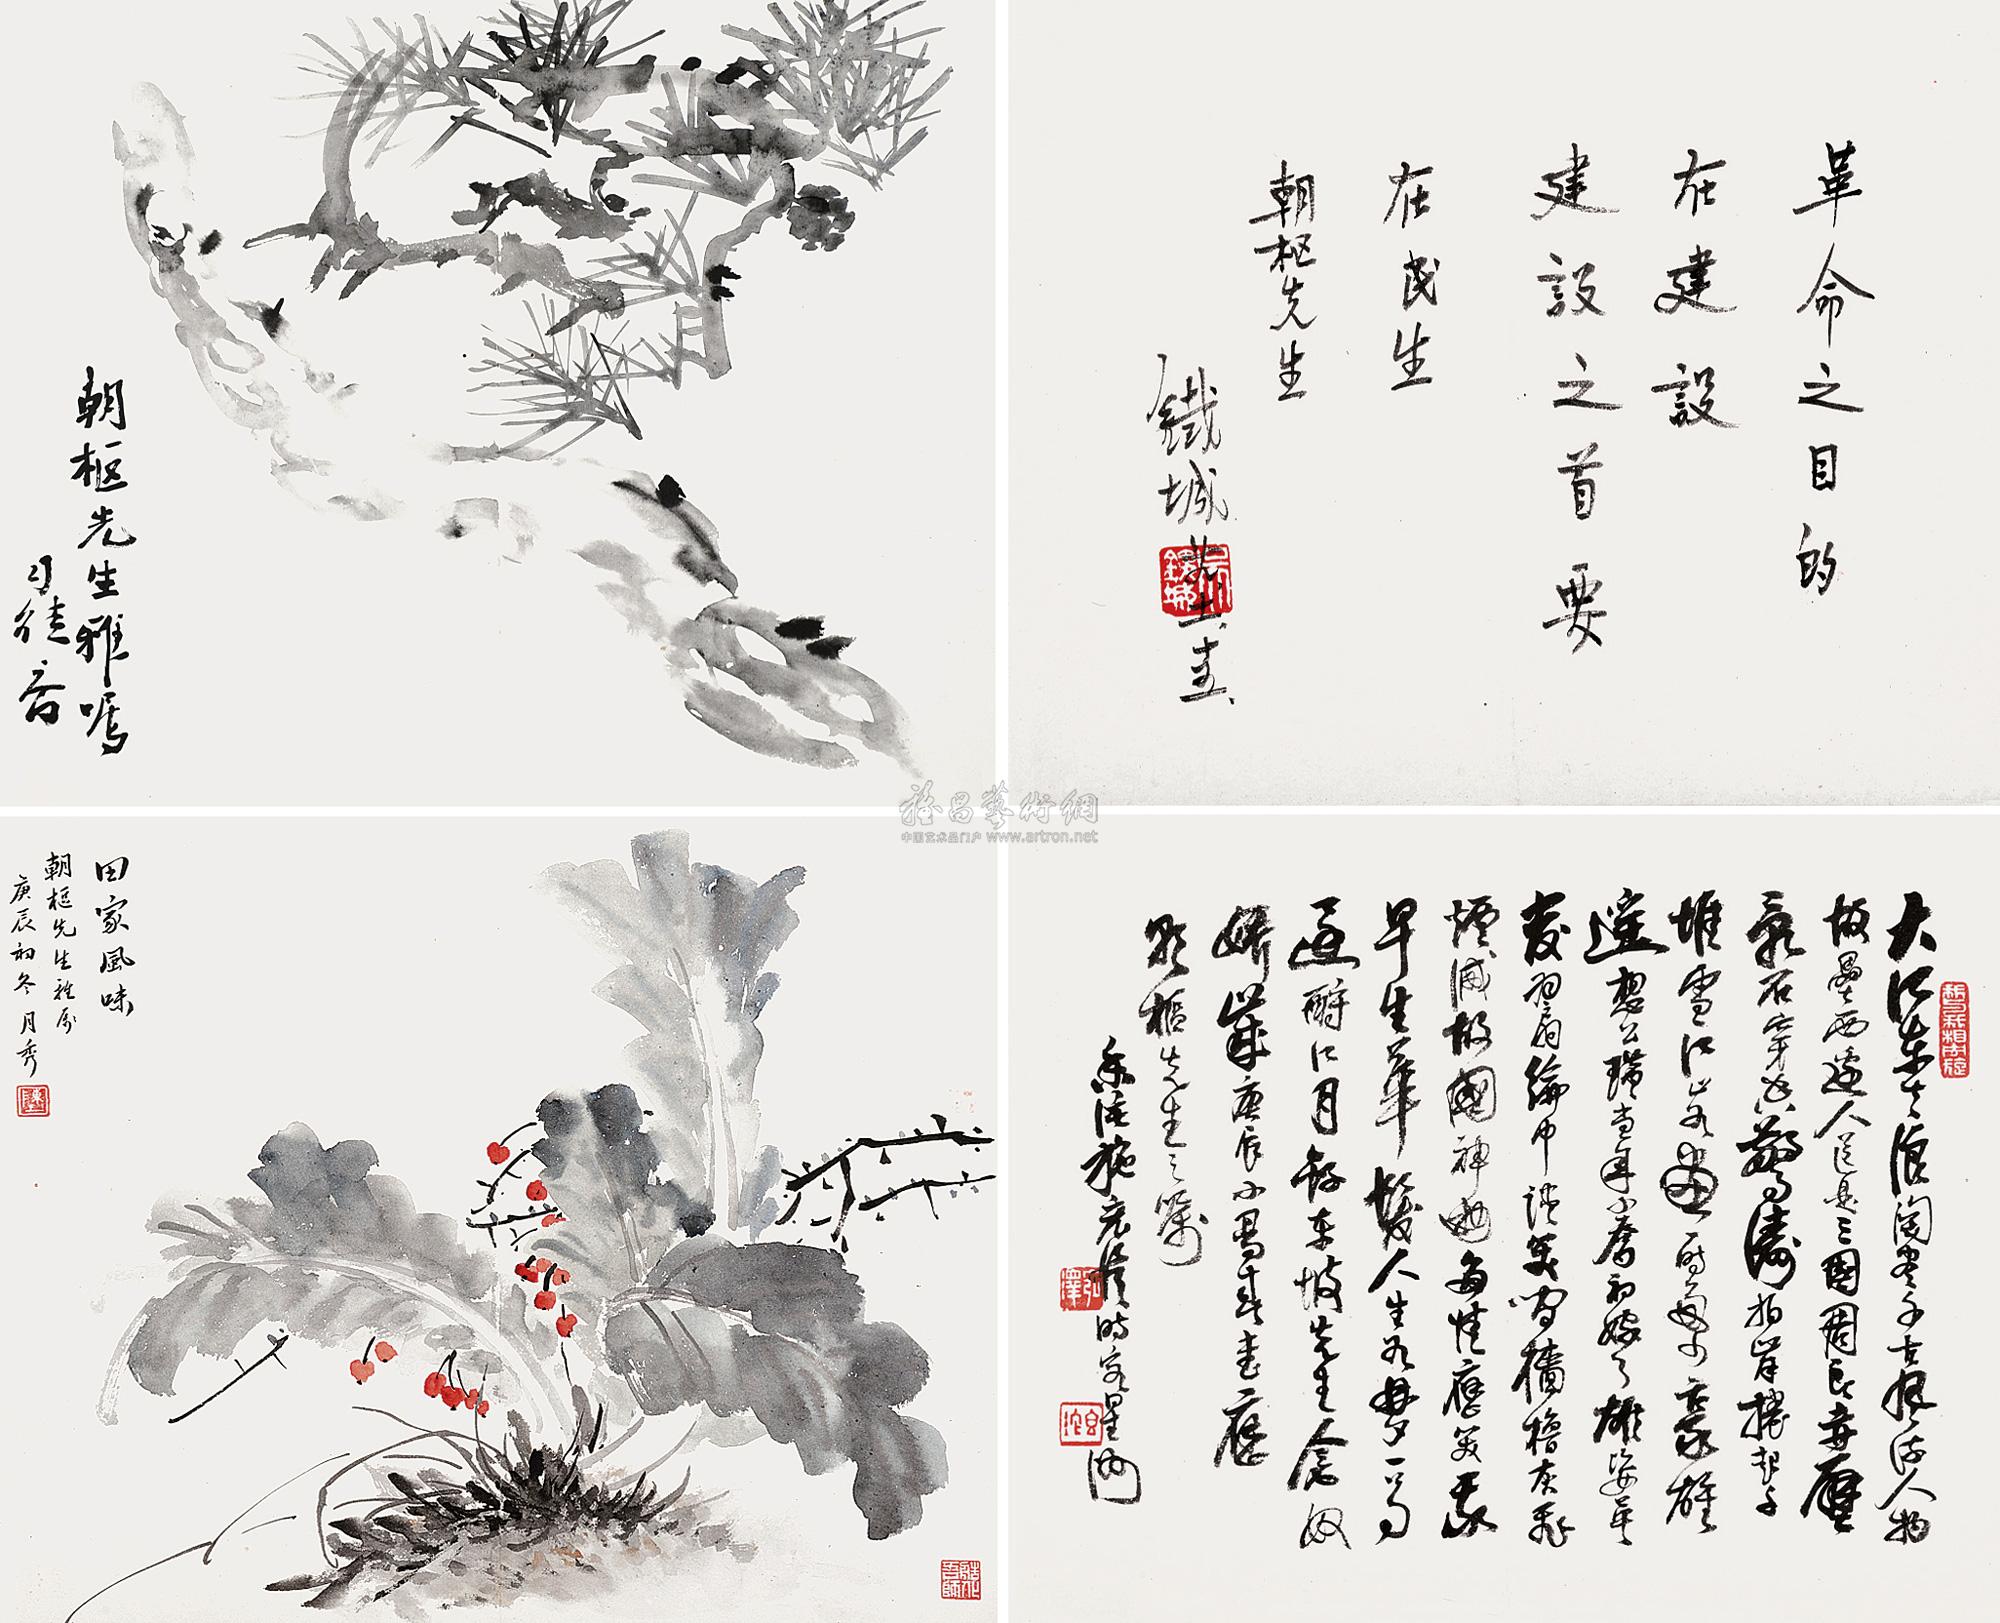 朝樞先生雅嘱
革命之目的
在建設
建設之首要
在民生
朝樞先生
鐵城
雅昌藝術網
中国艺术品门户 www.artron.net
田家風味
朝樞先生雅屬
庚辰初冬月秀
大江東去浪淘盡千古風流人物
故壘西邊人道是三國周郎赤壁
亂石穿空驚濤拍岸捲起千
堆雪江山如畫一時多少豪雄
遙想公瑾當年小喬初嫁了雄姿英
發羽扇綸巾談笑間檣櫓灰飛
煙滅故國神遊多情應笑我
早生華髮人生如夢一尊
還酹江月
庚辰
樞先生之囑